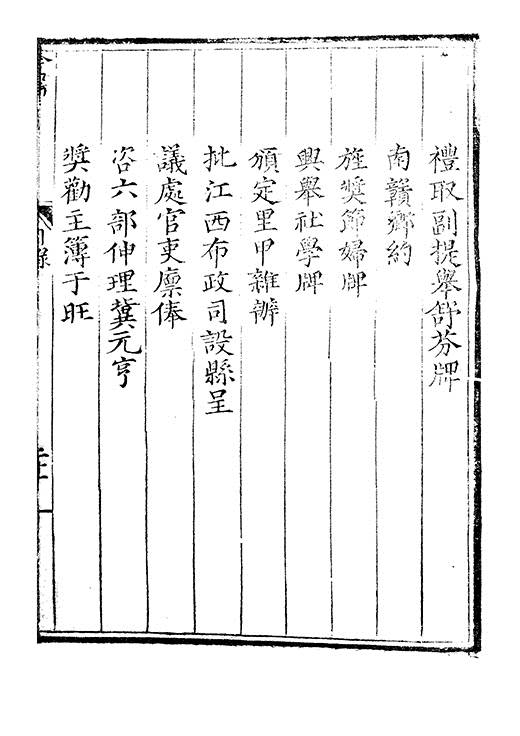 禮取副提舉舒芬牌
南贛鄉約
旌奬節婦牌
興舉社學牌
頒定里甲雜辦
批江西布政司設縣呈
議處官吏廪俸
咨六部伸理冀元亨
奬勸主簿于旺
目錄